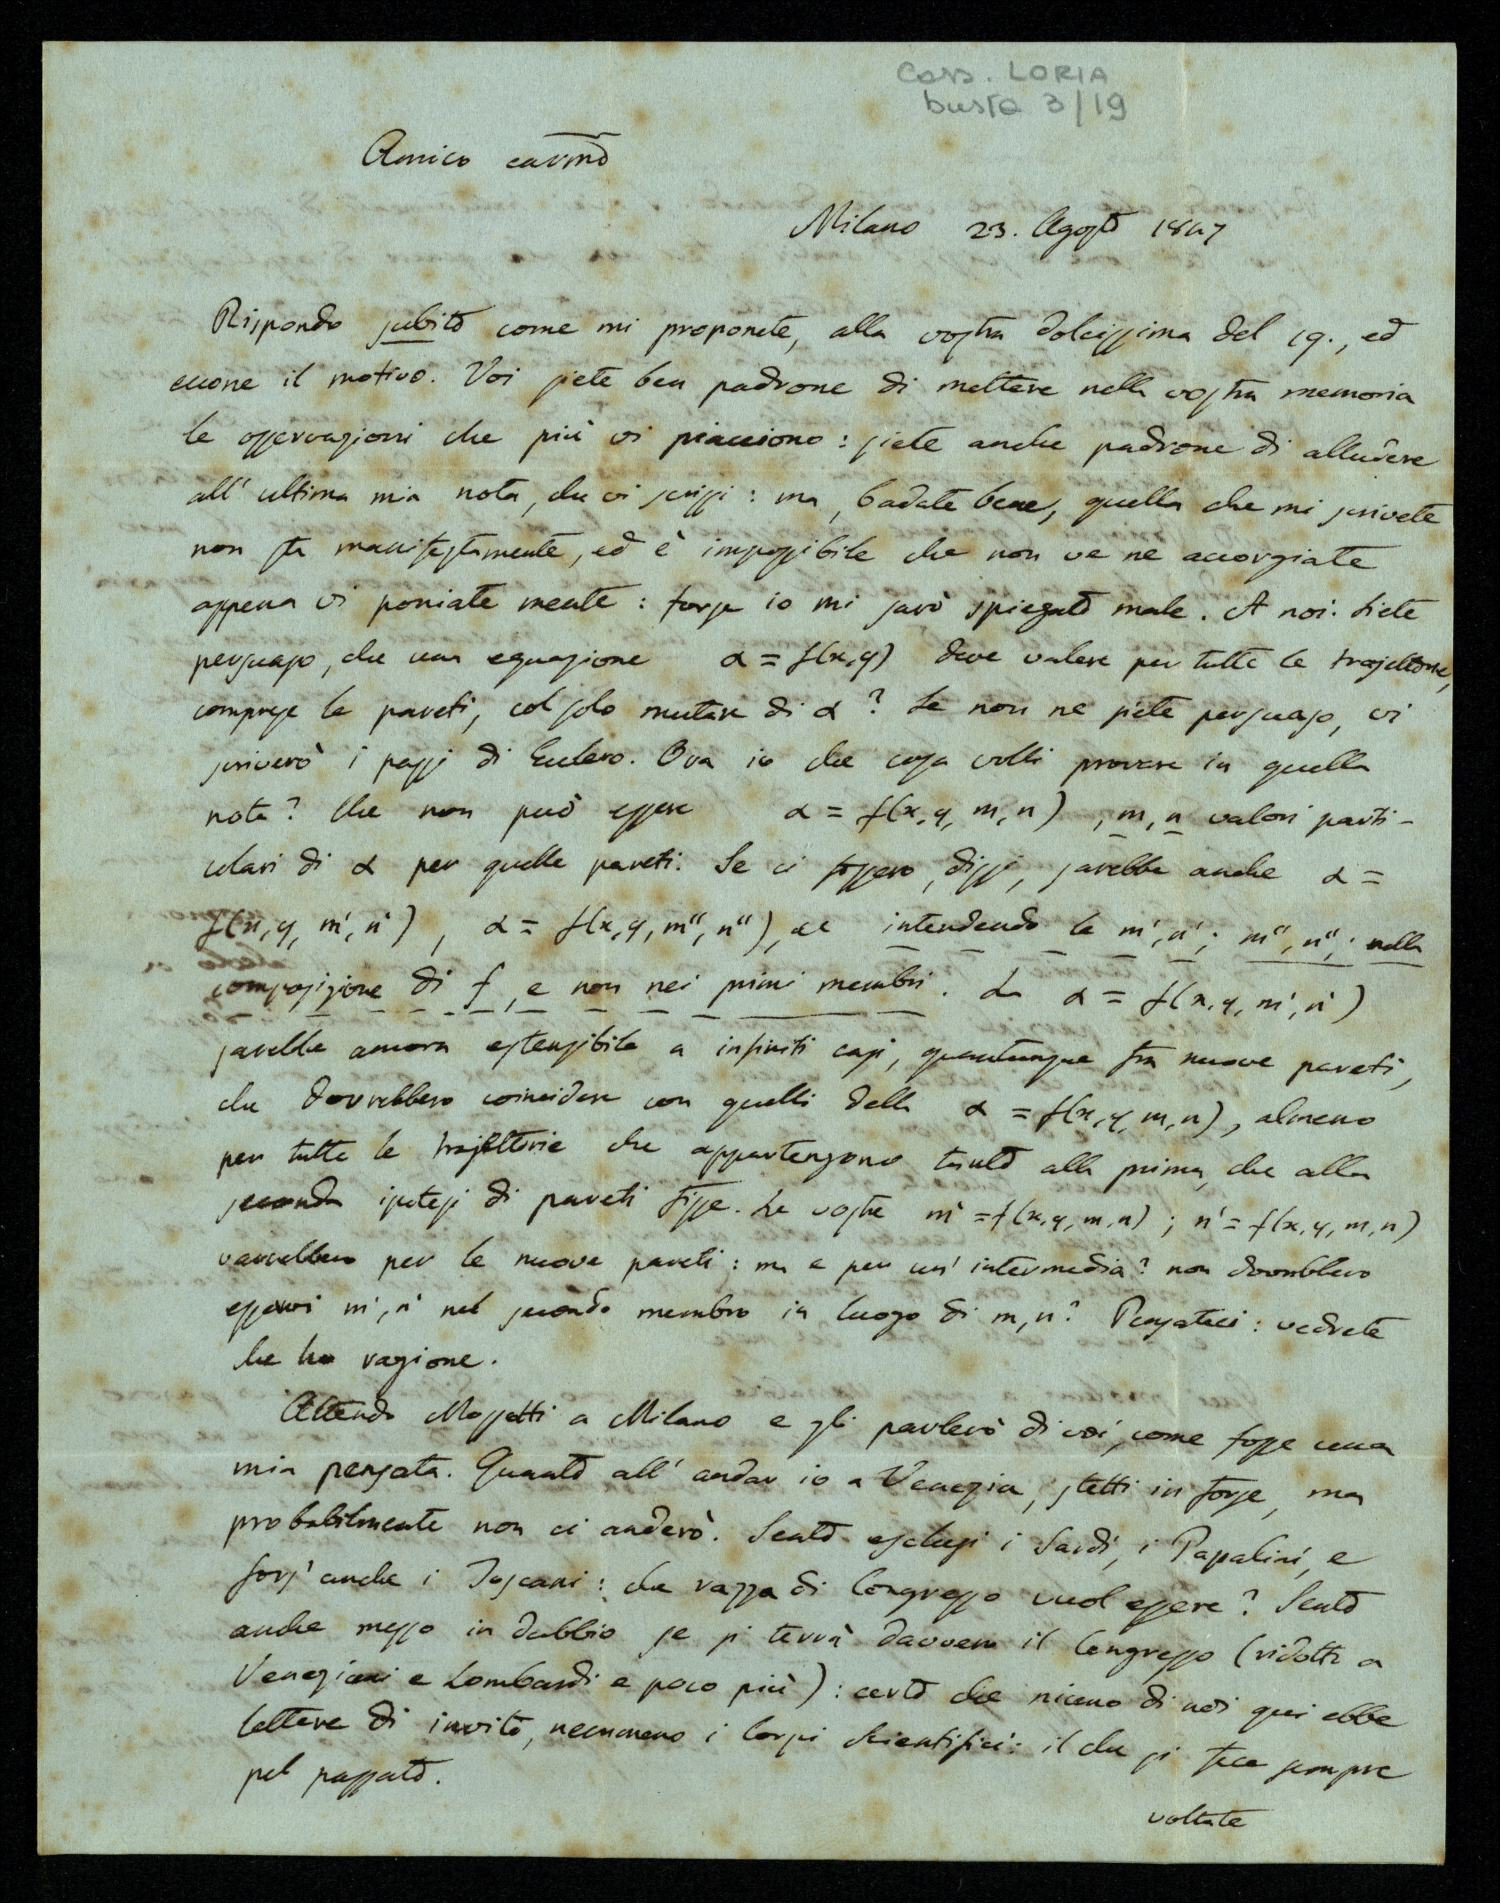 Cass. LORIA
busta 3/19
Amico carmo
Milano 23. Agosto 1847
Rispondo subito come mi proponete, alla vostra dolcissima del 19., ed
eccone il motivo. Voi siete ben padrone di mettere nella vostra memoria
le osservazioni che più vi piacciono: siete anche padrone di alludere
all' ultima mia nota, che vi scrissi: ma, badate bene, quella che mi scrivete
non sta manifestamente, ed è impossibile che non ve ne accorgiate
appena vi poniate mente: forse io mi sarò spiegato male. A noi. Siete
persuaso, che una equazione α = f(x,y) deve valere per tutte le trajettorie,
comprese le pareti, col solo mutare di α? Se non ne siete persuaso, vi
scriverò i passi di Eulero. Ora io che cosa volli provare in quella
nota? Che non può essere α = f(x, y, m, n) , m, n valori parti-
colari di α per quelle pareti. Se ci fossero, dissi, sarebbe anche α =
f(x, y, m', n') , α = f(x, y, m'', n''), ec intendendo le m', n'; m'', n''; nella
composizione di f, e non nei primi membri. La α = f(x, y, m', n')
sarebbe ancora estensibile a infiniti casi, quantunque fra nuove pareti,
che dovrebbero coincidere con quelli della α = f(x, y, m, n), almeno
per tutte le trajettorie che appartengono tanto alla prima, che alla
seconda ipotesi di pareti fisse. Le vostre m' = f(x, y, m, n) ; n' = f(x, y, m, n)
varrebbero per le nuove pareti: ma e per un' intermedia? non dovrebbero
esservi m', n' nel secondo membro in luogo di m, n? Pensateci: vedrete
che ho ragione.
Attendo Mossotti a Milano e gli parlerò di voi, come fosse una
mia pensata. Quanto all' andar io a Venezia, stetti in forse, ma
probabilmente non ci anderò. Sento esclusi i Sardi, i Papalini, e
fors' anche i Toscani: che razza di Congresso vuol essere? Sento
anche messo in dubbio se si terrà davvero il Congresso (ridotti a
Veneziani e Lombardi e poco più): certo che niuno di noi qui ebbe
lettere di invito, nemmeno i Corpi Scientifici: il che si fece sempre
pel passato.
voltate